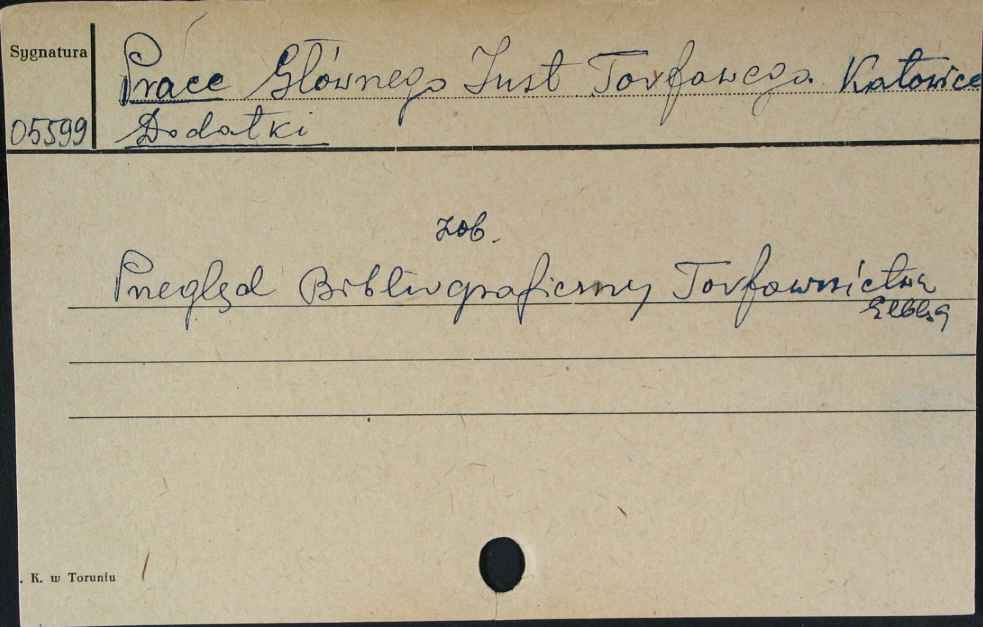 Sygnatura
Prace Głównego Inst Torfowego. Katowice
05599
Dodatki
zob.
Przegląd Bibliograficzny Torfownictwa
Elbląg
. K. w Toruniu